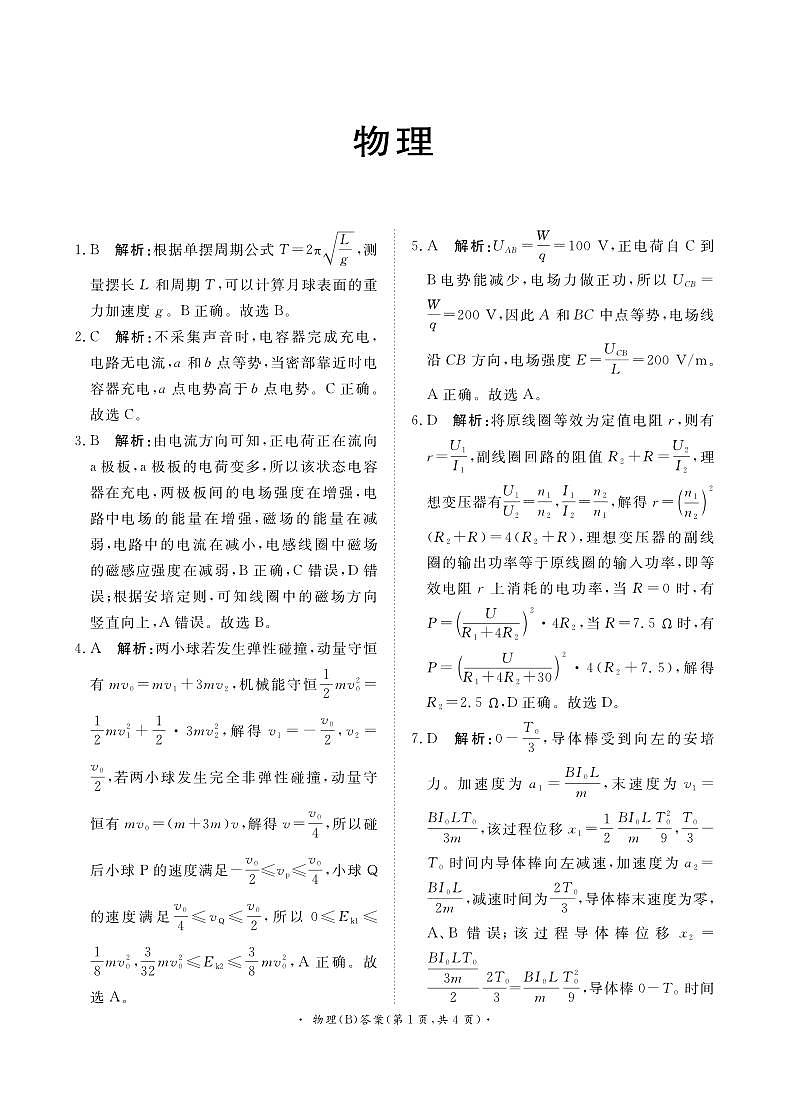 物理
1. B 解析:根据单摆周期公式 T=2π√(L/g),测
量摆长 L 和周期 T,可以计算月球表面的重
力加速度 g。B 正确。故选 B。
2. C 解析:不采集声音时,电容器完成充电,
电路无电流,a 和 b 点等势,当密部靠近时电
容器充电,a 点电势高于 b 点电势。C 正确。
故选 C。
3. B 解析:由电流方向可知,正电荷正在流向
a 极板,a 极板的电荷变多,所以该状态电容
器在充电,两极板间的电场强度在增强,电
路中电场的能量在增强,磁场的能量在减
弱,电路中的电流在减小,电感线圈中磁场
的磁感应强度在减弱,B 正确,C 错误,D 错
误;根据安培定则,可知线圈中的磁场方向
竖直向上,A 错误。故选 B。
4. A 解析:两小球若发生弹性碰撞,动量守恒
有 mv₀=mv₁+3mv₂,机械能守恒 1/2 mv₀²=
1/2 mv₁²+1/2·3mv₂²,解得 v₁=-v₀/2,v₂=
v₀/2,若两小球发生完全非弹性碰撞,动量守
恒有 mv₀=(m+3m)v,解得 v=v₀/4,所以碰
后小球 P 的速度满足-v₀/2≤vₚ≤v₀/4,小球 Q
的速度满足 v₀/4≤v_Q≤v₀/2,所以 0≤E_k1≤
1/8 mv₀²,3/32 mv₀²≤E_k2≤3/8 mv₀²,A 正确。故
选 A。
5. A 解析:U_AB=W/q=100 V,正电荷自 C 到
B 电势能减少,电场力做正功,所以 U_CB=
W/q=200 V,因此 A 和 BC 中点等势,电场线
沿 CB 方向,电场强度 E=U_CB/L=200 V/m。
A 正确。故选 A。
6. D 解析:将原线圈等效为定值电阻 r,则有
r=U₁/I₁,副线圈回路的阻值 R₂+R=U₂/I₂,理
想变压器有 U₁/U₂=n₁/n₂,I₁/I₂=n₂/n₁,解得 r=(n₁/n₂)²
(R₂+R)=4(R₂+R),理想变压器的副线
圈的输出功率等于原线圈的输入功率,即等
效电阻 r 上消耗的电功率,当 R=0 时,有
P=(U/(R₁+4R₂))²·4R₂,当 R=7.5 Ω 时,有
P=(U/(R₁+4R₂+30))²·4(R₂+7.5),解得
R₂=2.5 Ω,D 正确。故选 D。
7. D 解析:0-T₀/3,导体棒受到向左的安培
力。加速度为 a₁=BI₀L/m,末速度为 v₁=
BI₀LT₀/3m,该过程位移 x₁=1/2 BI₀L/m T₀²/9,T₀/3-
T₀ 时间内导体棒向左减速,加速度为 a₂=
BI₀L/2m,减速时间为 2T₀/3,导体棒末速度为零,
A、B 错误;该过程导体棒位移 x₂=
(BI₀LT₀/3m)/2 2T₀/3=BI₀L/m T₀²/9,导体棒 0-T₀ 时间
·物理(B)答案(第 1 页,共 4 页)·